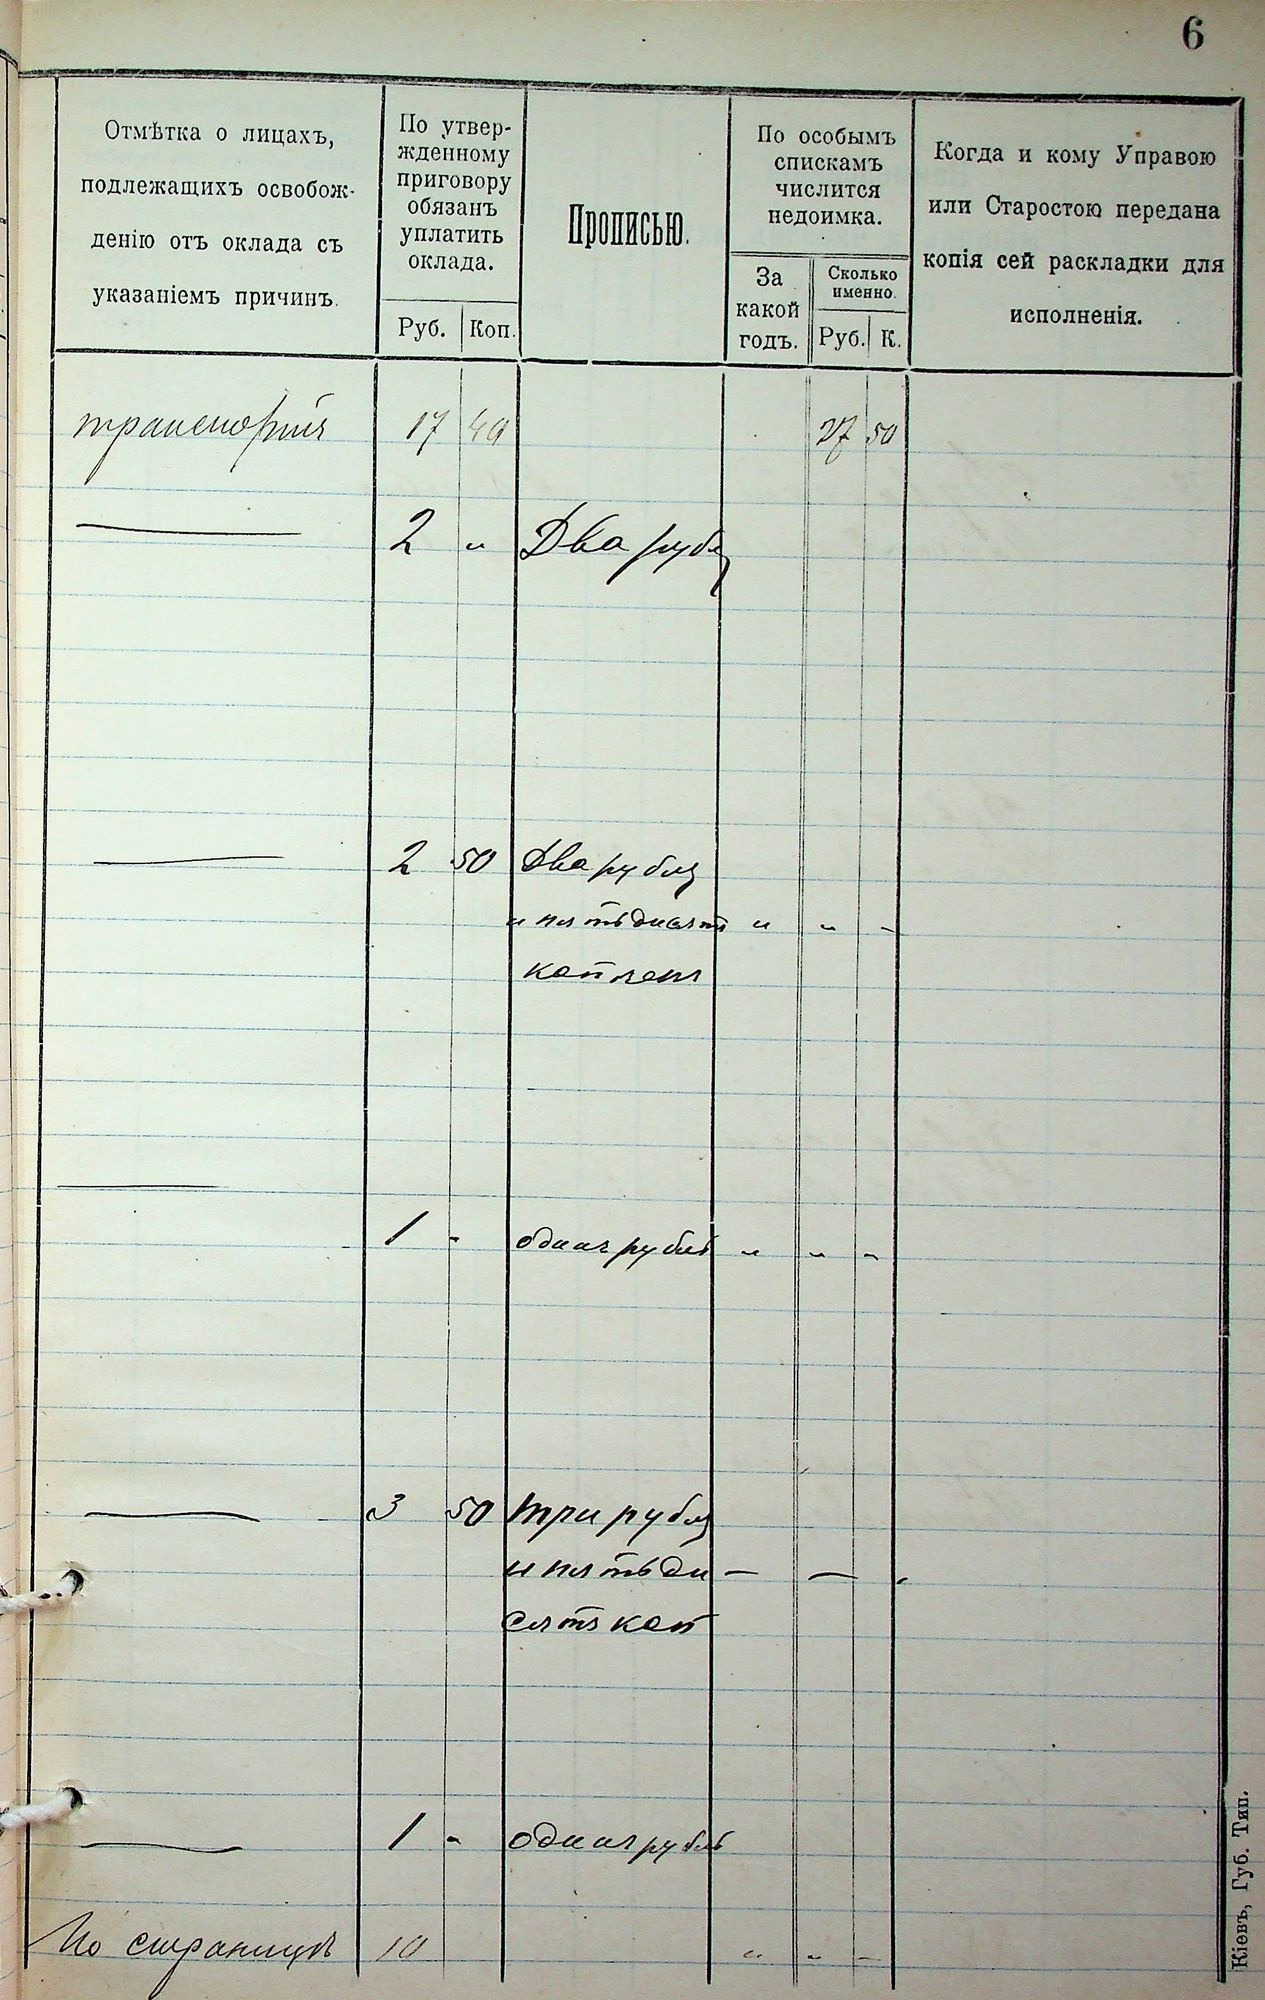 6
Отмѣтка о лицахъ,
подлежащихъ освобож-
денію отъ оклада съ
указаніемъ причинъ.
По утвер-
жденному
приговору
обязанъ
уплатить
оклада.
Руб. Коп.
Прописью.
По особымъ
спискамъ
числится
недоимка.
За
какой
годъ.
Сколько
именно.
Руб. К.
Когда и кому Управою
или Старостою передана
копія сей раскладки для
исполненія.
транспортъ 17 27 50
2 " Два рубля
2 50 Два рубля
и пятьдисятъ " " -
копѣекъ
1 - одинъ рубль " " -
3 50 три рубля
и пятьди — —
сятъ коп
1 - одинъ рубль
По страницѣ 10 " " -
Кіевъ, Губ. Тип.